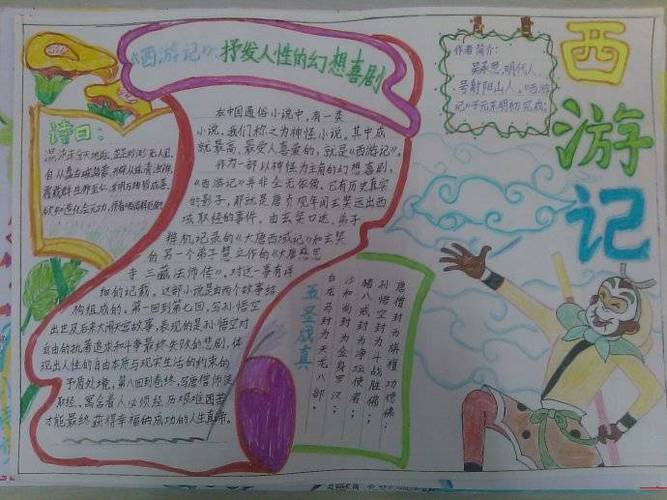 《西游记》:抒发人性的幻想喜剧
诗曰:
混沌未分天地乱,茫茫渺渺无人见。
自从盘古破鸿蒙,开辟从兹清浊辨。
覆载群生仰至仁,发明万物皆成善。
欲知造化会元功,
在中国通俗小说中,有一类
小说,我们称之为神怪小说。其中成
就最高、最受人喜爱的,就是《西游记》。
作为一部以神怪为主有的幻想喜剧,
《西游记》并非全无依傍。它有历史真实
的影子,那就是唐贞观年间玄奘远出西
域取经的事件。由玄奘口述,弟子
辩机记录的《大唐西域记》和玄奘
的另一个弟子慧立作的《大唐慈恩
寺三藏法师传》,对这一事有详
细的记载。这部小说是由两个故事结
构组成的。第一回到第七回,写孙悟空
出世及后来大闹天宫故事,表现的是孙悟空对
自由的执著追求和斗争最终失败的悲剧,体
现出人性的自由本质与现实生活的约束的
矛盾处境。第八回到卷终,写唐僧师徒
取经,寓含着人必须经历艰难困苦
才能最终获得幸福的成功的人生真谛。
作者简介:
吴承恩,明代人,
号射阳山人,《西游
记》于元末明初完成。
西
游
记
唐僧封为旃檀功德佛
孙悟空封为斗战胜佛
猪八戒封为净坛使者
沙和尚封为金身罗汉
白龙马封为天龙八部
五圣成真